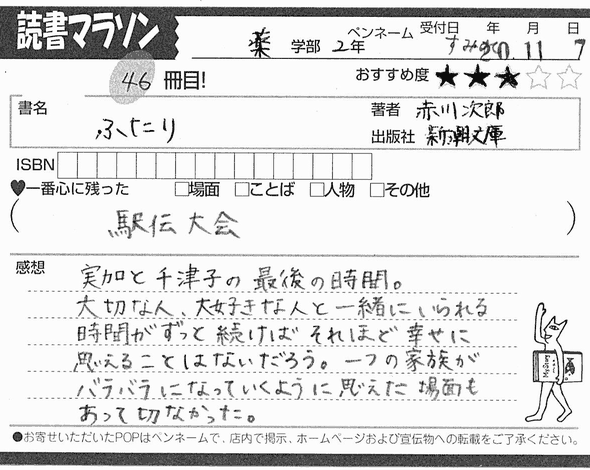 読書マラソン
薬 学部 2年 ペンネーム すみれ 受付日 年 月 日
20.11 7
46 冊目! おすすめ度 ★★★☆☆
書名 ふたり
著者 赤川次郎
出版社 新潮文庫
ISBN
♥一番心に残った □場面 □ことば □人物 □その他
( 駅伝大会 )
感想
実加と千津子の最後の時間。
大切な人、大好きな人と一緒にいられる
時間がずっと続けばそれほど幸せに
思えることはないだろう。一つの家族が
バラバラになっていくように思えた場面も
あって切なかった。
●お寄せいただいたPOPはペンネームで、店内で掲示、ホームページおよび宣伝物への転載をご了承ください。